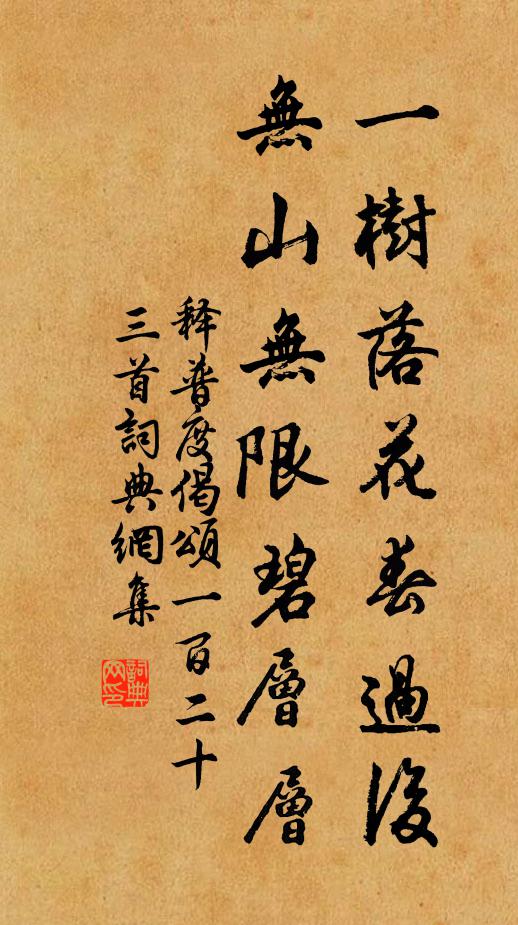 一樹落花春過後
無山無限碧層層
释普度偈頌一百二十
三首詞典網集
詞典
网印